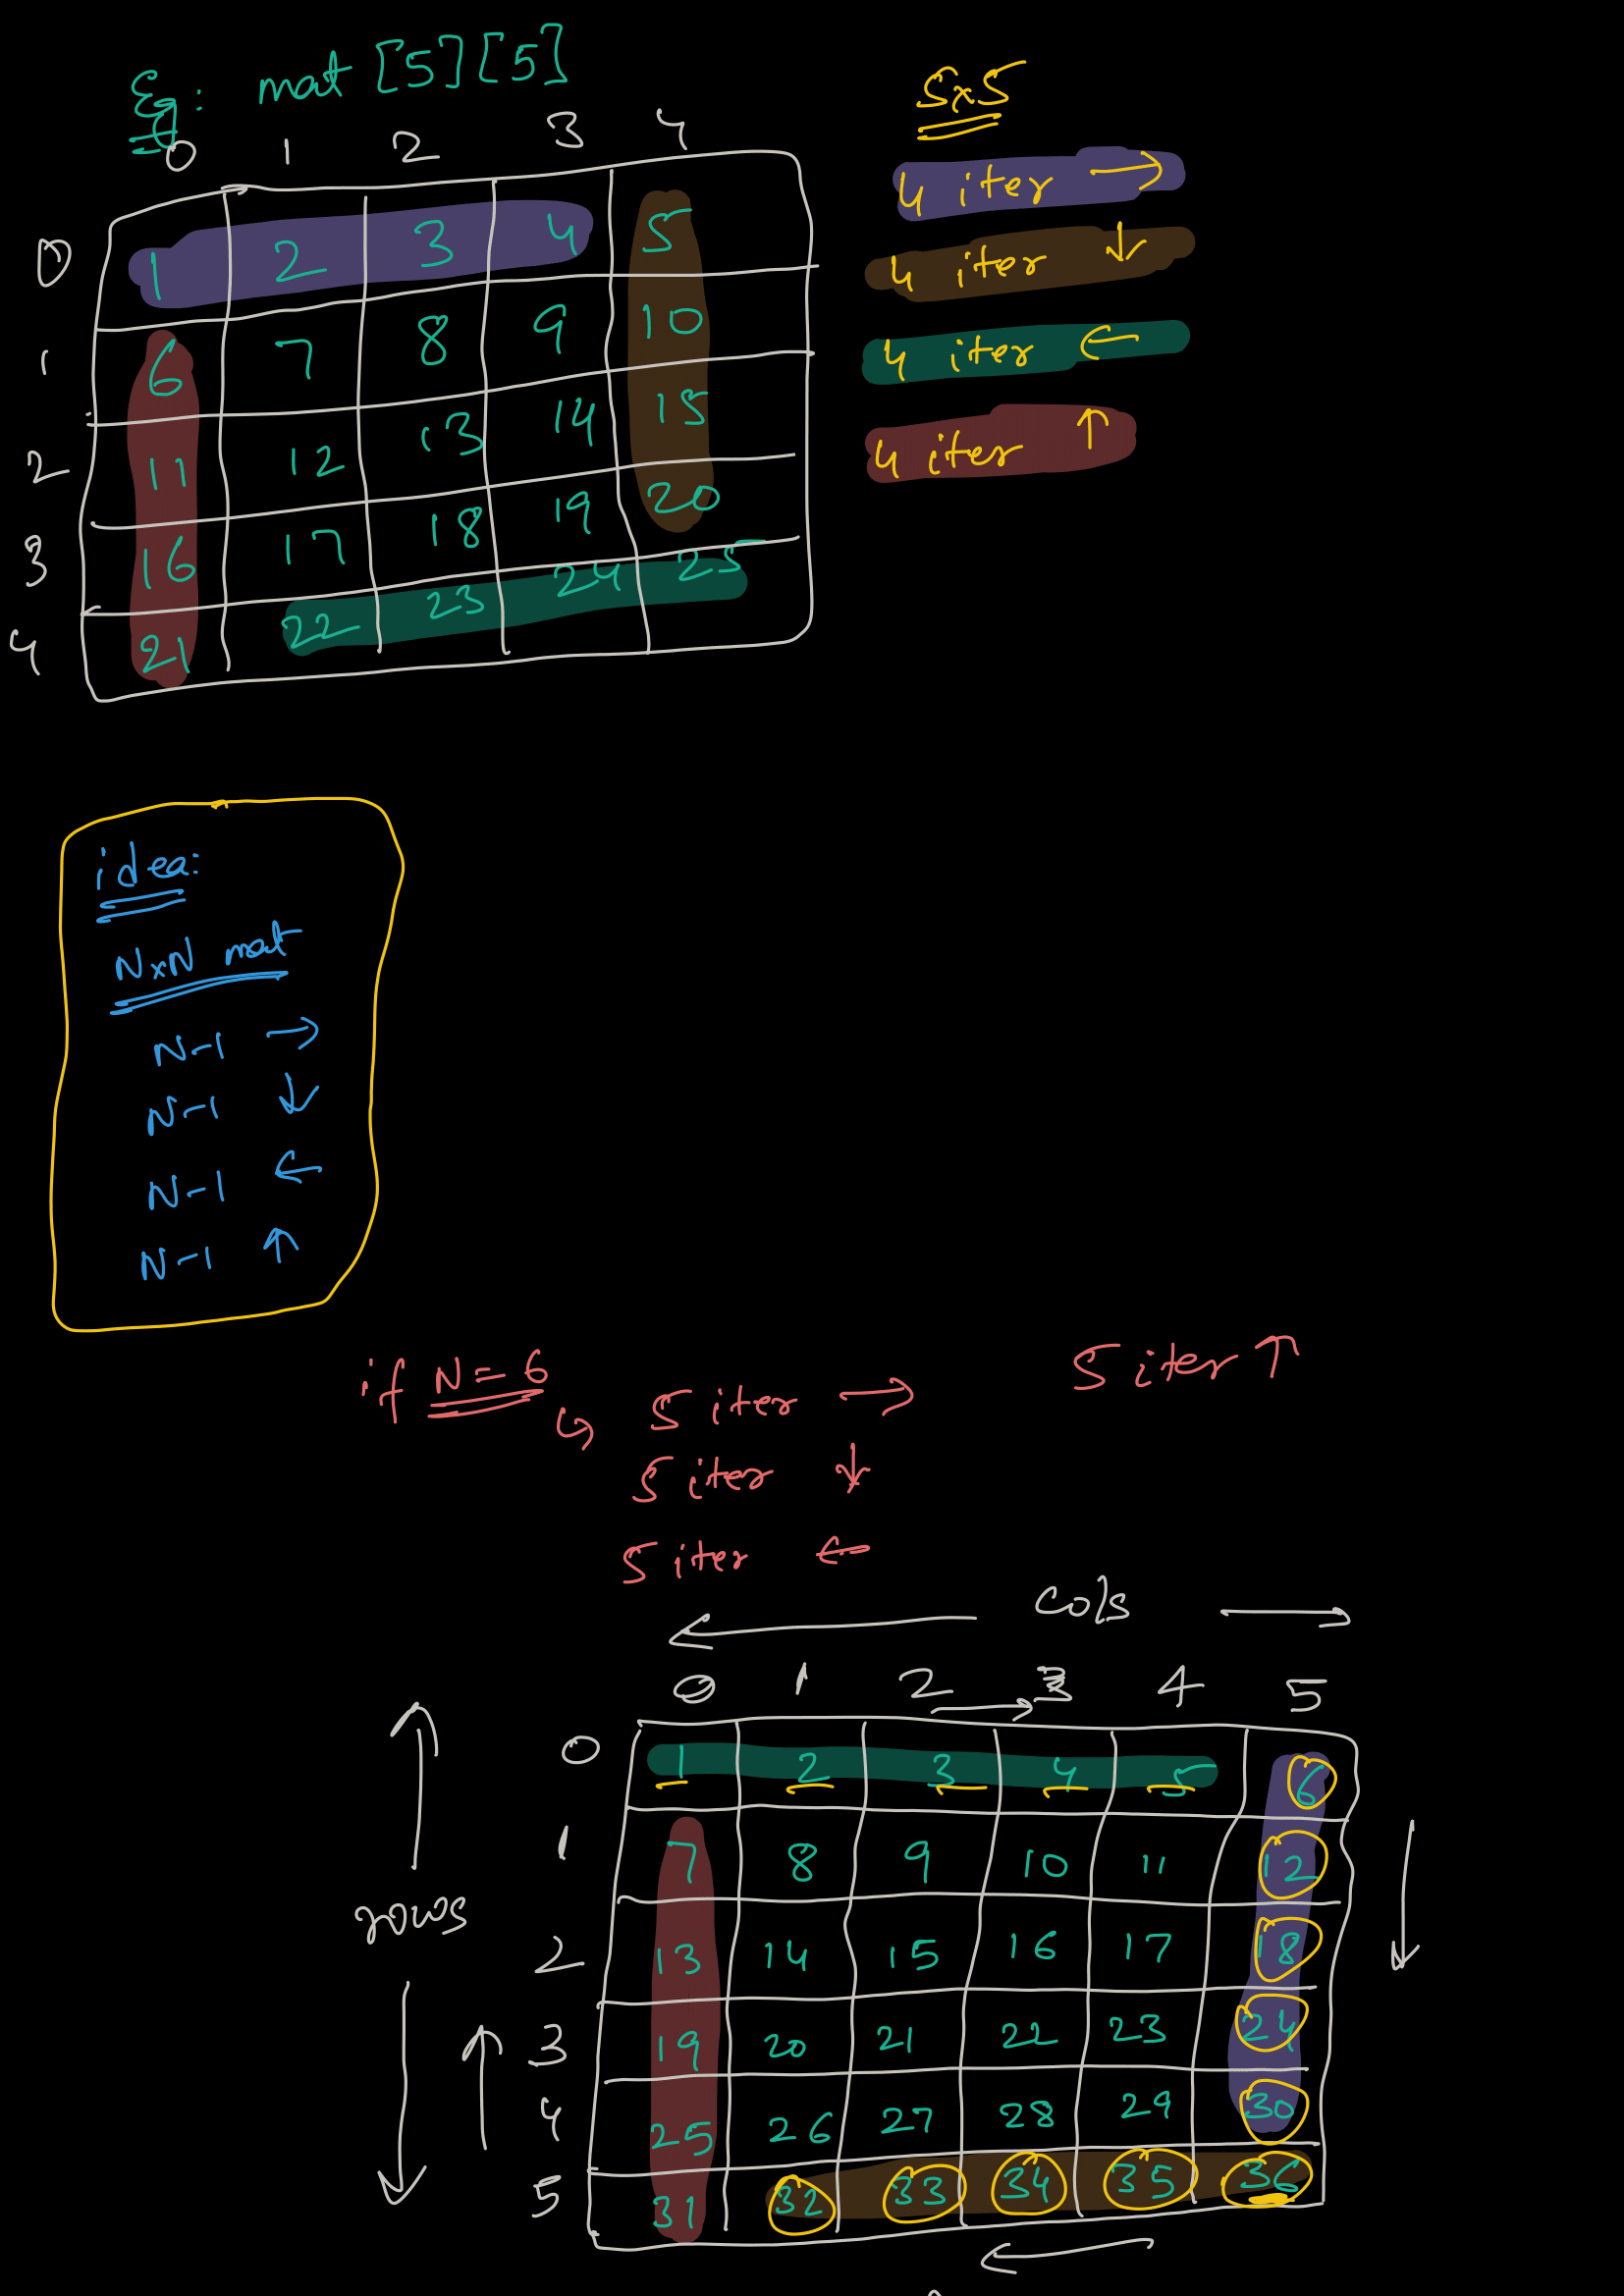 Eg: mat [5][5]
0 1 2 3 4
0 1 2 3 4 5
1 6 7 8 9 10
2 11 12 13 14 15
3 16 17 18 19 20
4 21 22 23 24 25
5x5
4 iter →
4 iter ↓
4 iter ←
4 iter ↑
idea:
NxN mat
N-1 →
N-1 ↓
N-1 ←
N-1 ↑
if N=6 ↳ 5 iter →
5 iter ↓
5 iter ←
5 iter ↑
← cols →
0 1 2 → 3 4 5
↑ rows ↓
0 1 2 3 4 5 6
1 7 8 9 10 11 12
2 13 14 15 16 17 18
3 19 20 21 22 23 24
4 25 26 27 28 29 30
5 31 32 33 34 35 36